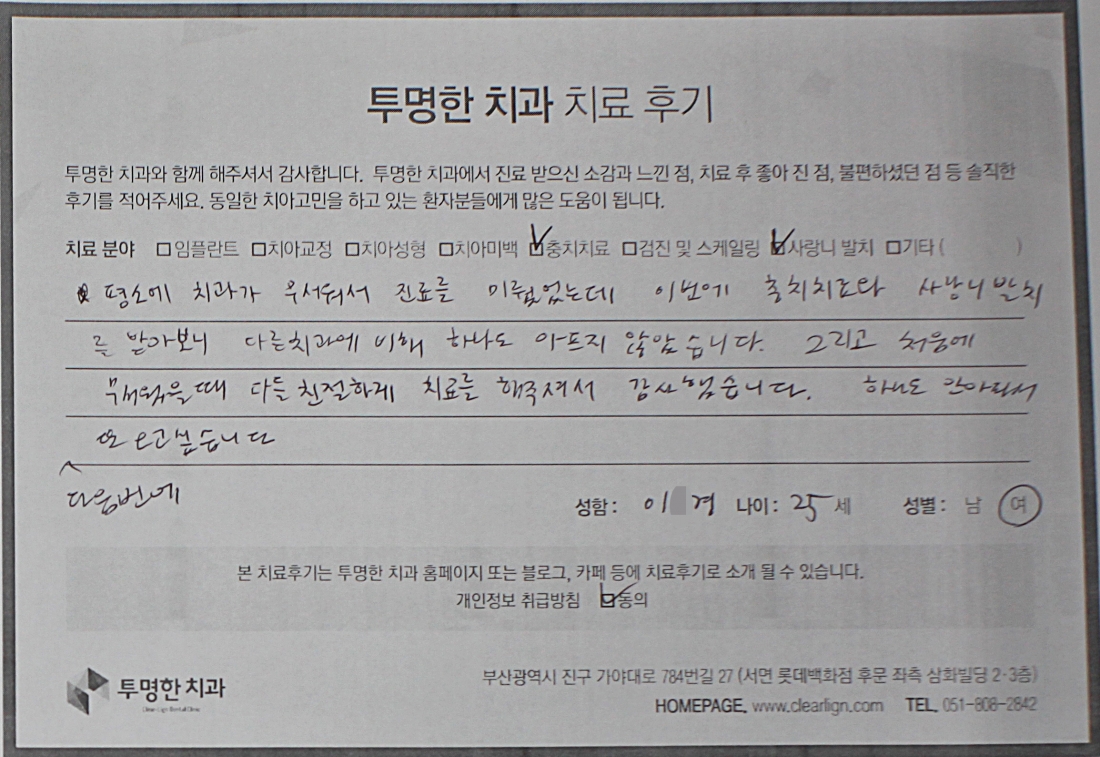 투명한 치과 치료 후기
투명한 치과와 함께 해주셔서 감사합니다. 투명한 치과에서 진료 받으신 소감과 느낀 점, 치료 후 좋아 진 점, 불편하셨던 점 등 솔직한
후기를 적어주세요. 동일한 치아고민을 하고 있는 환자분들에게 많은 도움이 됩니다.
치료 분야 □임플란트 □치아교정 □치아성형 □치아미백 ☑충치치료 □검진 및 스케일링 ☑사랑니 발치 □기타 ( )
평소에 치과가 무서워서 진료를 미뤘었는데 이번에 충치치료와 사랑니발치
를 받아보니 다른치과에 비해 하나도 아프지 않았습니다. 그리고 처음에
무서웠을때 다들 친절하게 치료를 해주셔서 감사했습니다. 하나도 안아파서
또 오고싶습니다
다음번에
성함: 이 경 나이: 25 세 성별: 남 여
본 치료후기는 투명한 치과 홈페이지 또는 블로그, 카페 등에 치료후기로 소개 될 수 있습니다.
개인정보 취급방침 ☑동의
투명한 치과
부산광역시 진구 가야대로 784번길 27 (서면 롯데백화점 후문 좌측 삼화빌딩 2·3층)
HOMEPAGE. www.clearlign.com TEL. 051-808-2842